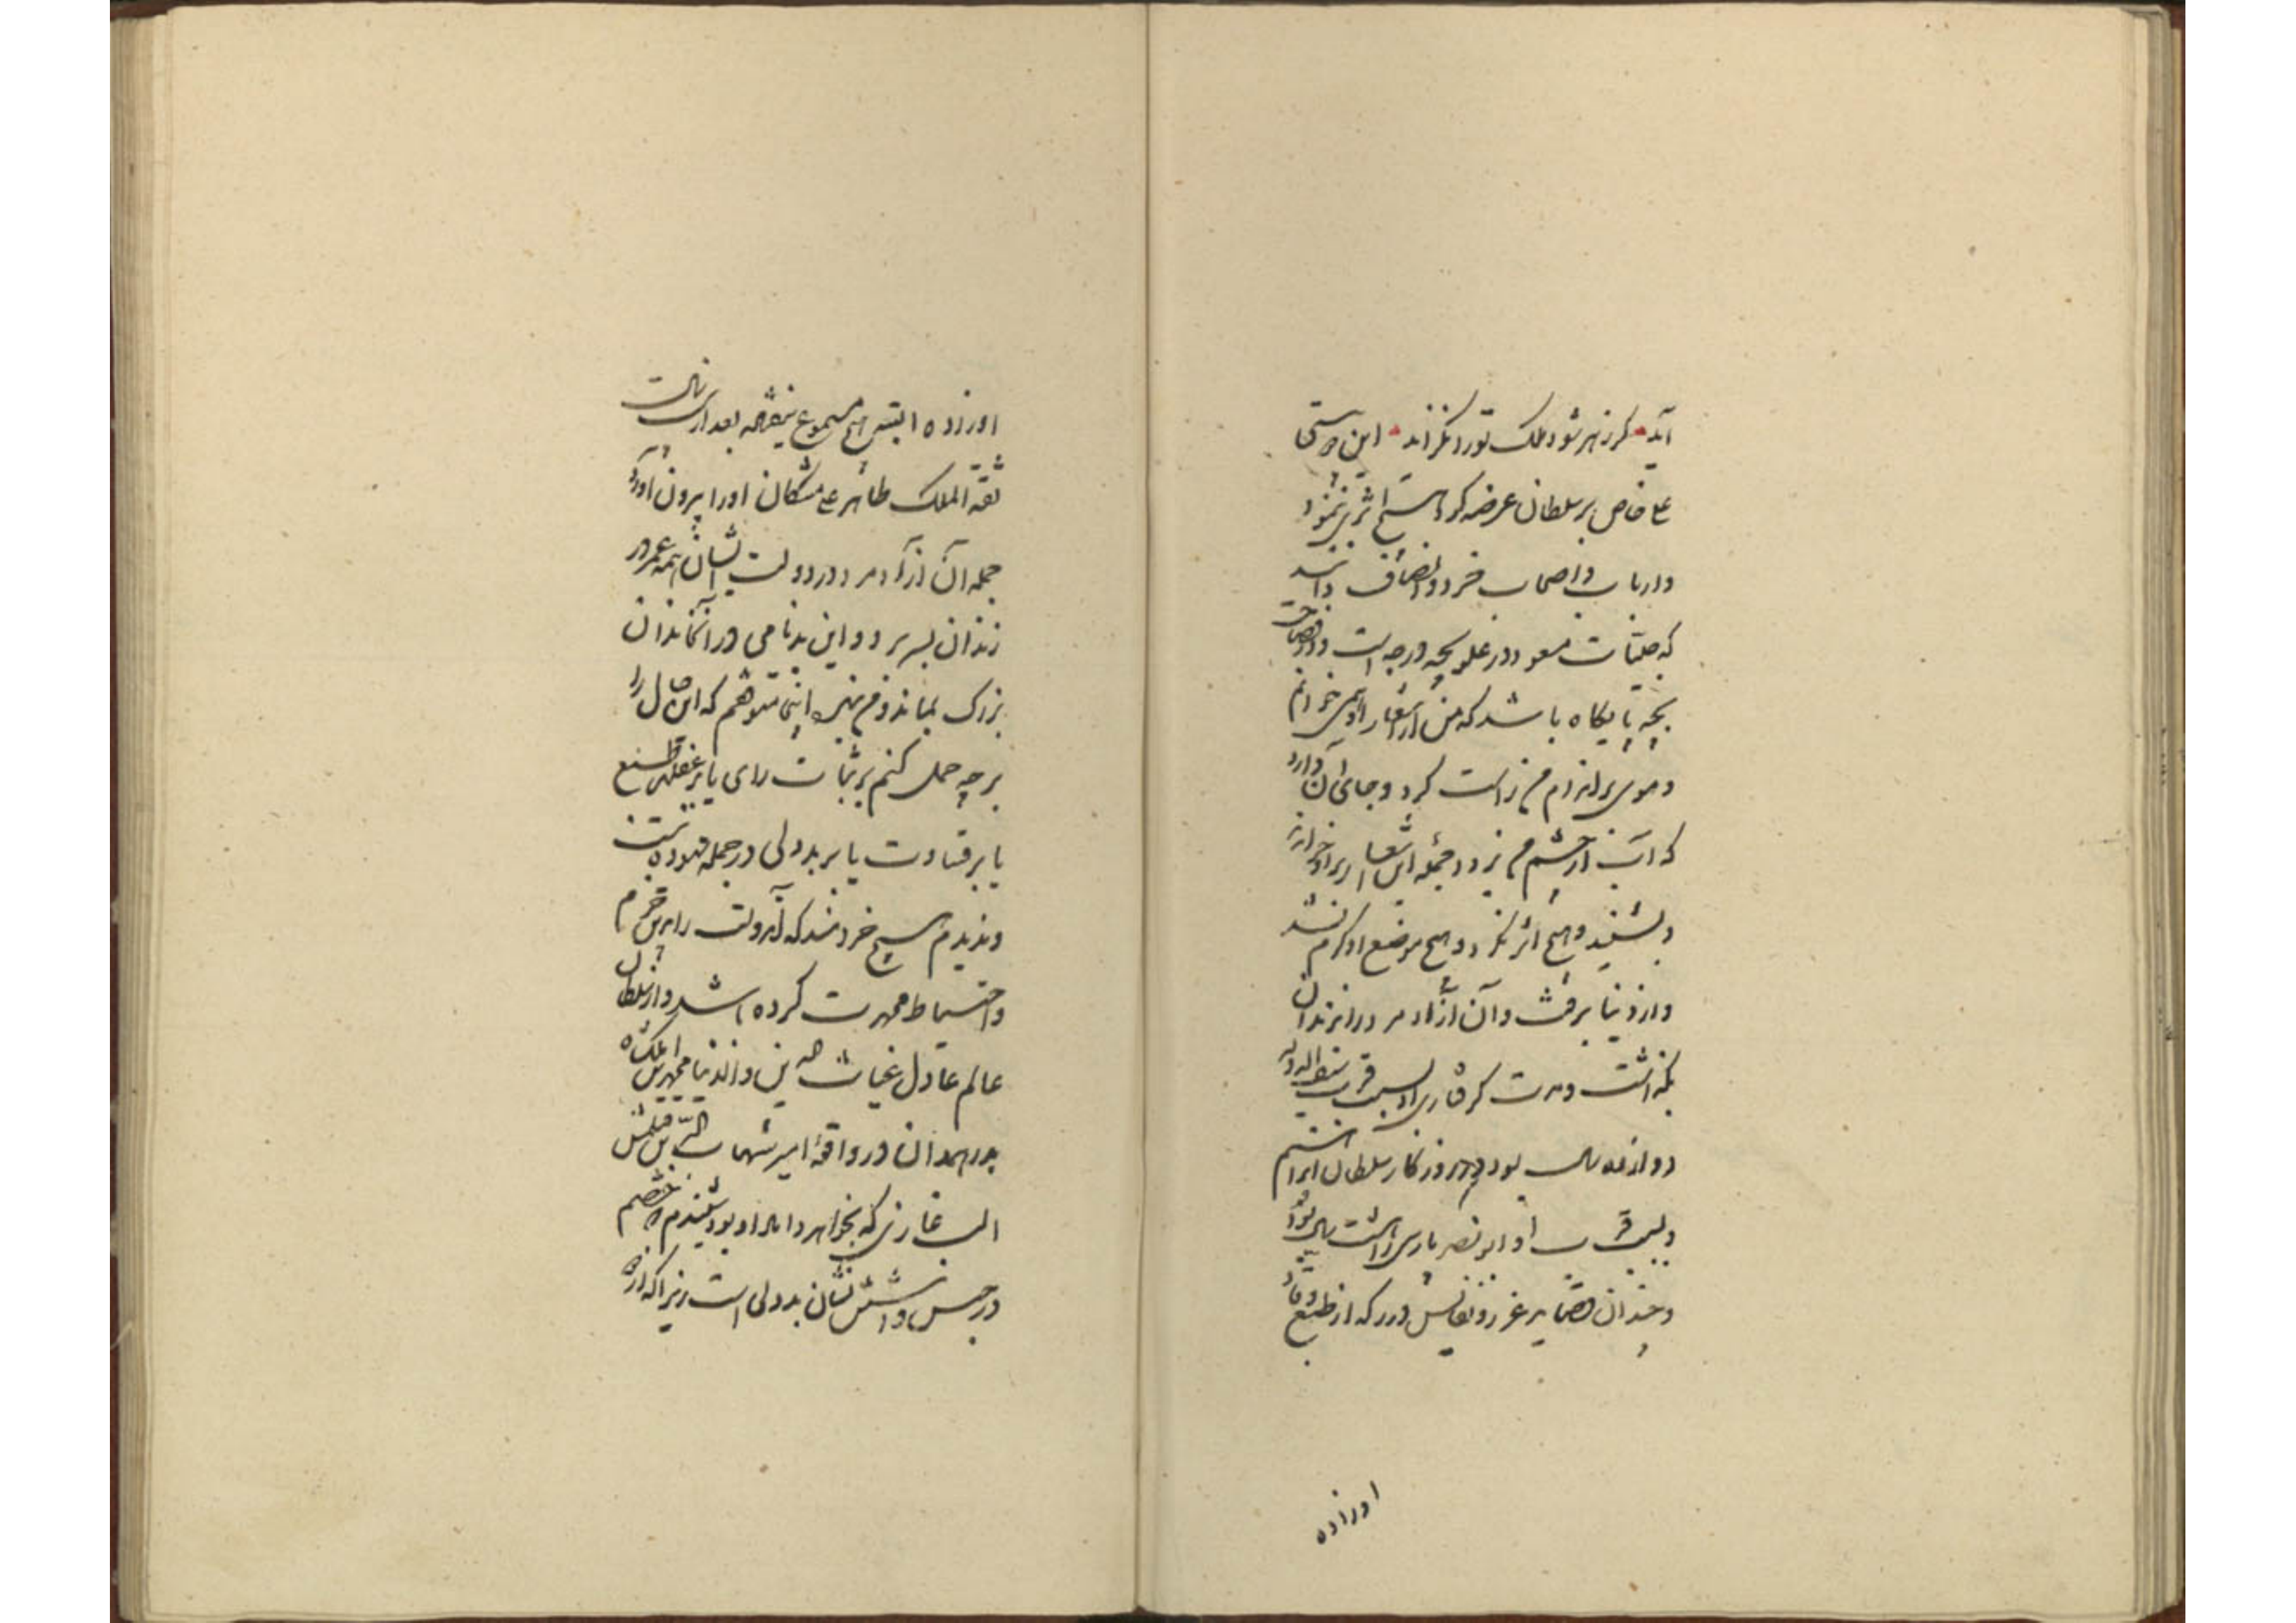 آید گر زهر شود ملک تو را نگزاند این دوبیتی
علی خاص بر سلطان عرضه کرد هیچ اثری نمود
و ارباب و اصحاب خرد و انصاف دانند
که حبسیات مسعود در علو بچه درجه است و در فصاحت
بچه پایگاه باشد که من از اشعار او همی خوانم
و موی بر اندام من راست گردد و جای آن دارد
که آب از چشم من برود جمله این اشعار بر او خواندند
و بشنید و هیچ اثر نکرد و هیچ موضع او گرم نشد
و از دنیا برفت و آن آزاد مرد را در زندان
بگذاشت و مدت گرفتاری او بسبب قربت سیف الدوله
دوازده سال بود در روزگار سلطان ابراهیم
و بسبب قربت او ابونصر پارسی را هشت سال بود
و چندان قصاید غرر و نفایس درر که از طبع وقاد
او زاده
او زاده البته هیچ مسموع نیفتاد بعد از هشت سال
ثقة الملک طاهر علی مشکان او را بیرون آورد
جمله آن آزاد مرد در دولت ایشان همه عمر در
زندان بسر برد و این بدنامی در آن خاندان
بزرگ بماند و من بنده اینجا متوقفم که این حال را
بر چه حمل کنم بر ثبات رای یا بر غفلت طبع
یا بر قساوت یا بر بددلی در جمله ستوده نیست
و ندیدم هیچ خردمند که آن دولت را برین حزم
و احتیاط محمدت کرده باشد و از سلطان
عالم عادل غیاث الدین و الدنیا محمد بن ملکشاه
بدر همدان در واقعه امیر شهاب الدین قتلمش
الب غازی که بخواهر داماد او بود شنیدم که خصم
در حبس داشتن نشان بددلی است زیرا که از